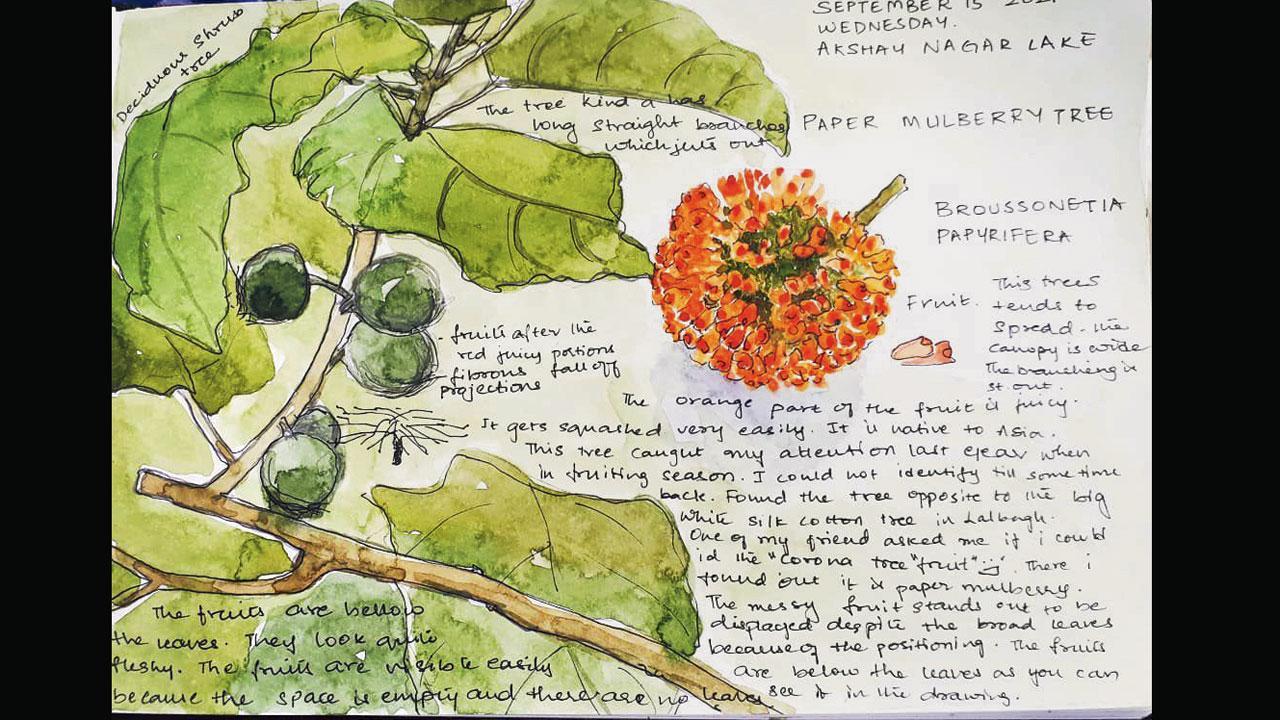 SEPTEMBER 15 2021
WEDNESDAY.
AKSHAY NAGAR LAKE
Deciduous Shrub
tree
The tree kind a has
long straight branches
which juts out
PAPER MULBERRY TREE
BROUSSONETIA
PAPYRIFERA
Fruit.
This trees
tends to
spread. the
canopy is wide
The branching is
st. out.
- fruits after the
red juicy portions
- fibrous fall off
projections
The orange part of the fruit is juicy.
It gets squashed very easily. It is native to Asia.
This tree caught my attention last year when
in fruiting season. I could not identify till some time
back. Found the tree opposite to the big
white silk cotton tree in Lalbagh.
One of my friend asked me if i could
id the "corona tree" fruit". There i
found out it is paper mulberry.
The messy fruit stands out to be
displayed despite the broad leaves
because of the positioning. The fruits
are below the leaves as you can
see it in the drawing.
The fruits are bellow
the leaves. They look quite
fleshy. The fruits are visible easily
because the space is empty and there are no leaves